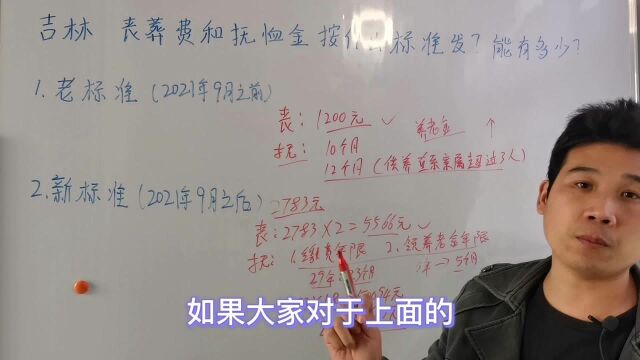 吉林 丧葬费和抚恤金按什么标准发?能有多少?
1.老标准(2021年9月之前)
丧:1200元 养老金
抚:10个月
12个月(供养直系亲属超过3人)
2.新标准(2021年9月之后)
2783元
丧:2783×2=5566元
抚:1.缴费年限 2.领养老金年限
29年
1年→5个月
如果大家对于上面的